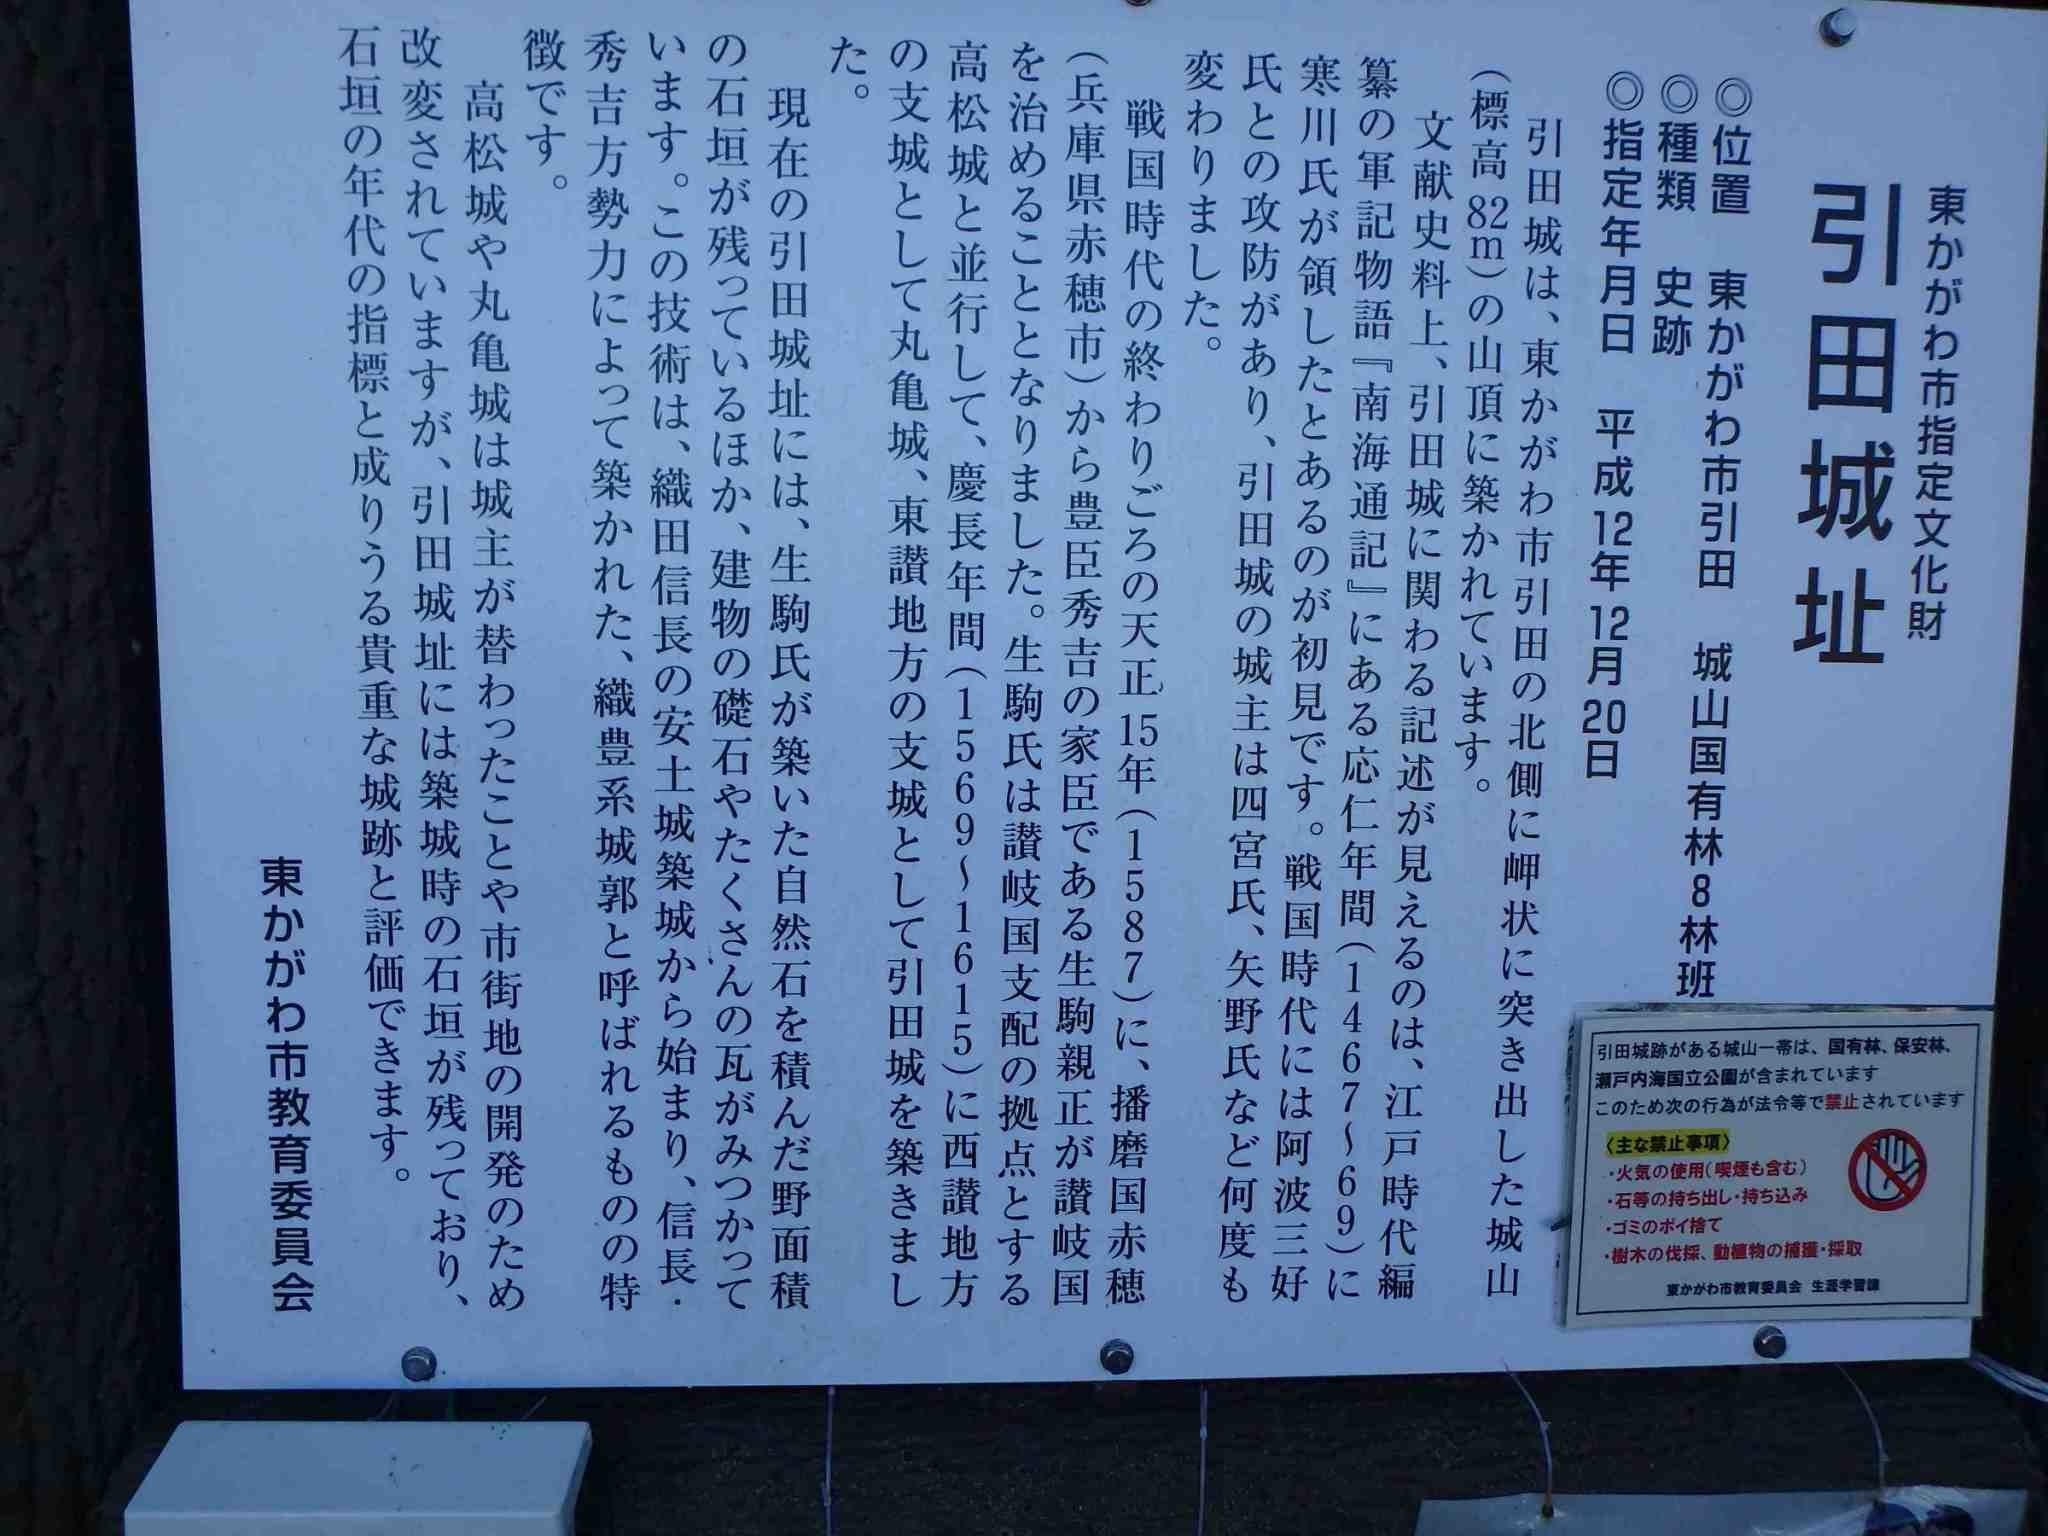 東かがわ市指定文化財
引田城址
◎位置　東かがわ市引田　城山国有林8林班
◎種類　史跡
◎指定年月日　平成12年12月20日
引田城は、東かがわ市引田の北側に岬状に突き出した城山
（標高82m）の山頂に築かれています。
文献史料上、引田城に関わる記述が見えるのは、江戸時代編
纂の軍記物語『南海通記』にある応仁年間（1467〜69）に
寒川氏が領したとあるのが初見です。戦国時代には阿波三好
氏との攻防があり、引田城の城主は四宮氏、矢野氏など何度も
変わりました。
戦国時代の終わりごろの天正15年（1587）に、播磨国赤穂
（兵庫県赤穂市）から豊臣秀吉の家臣である生駒親正が讃岐国
を治めることとなりました。生駒氏は讃岐国支配の拠点とする
高松城と並行して、慶長年間（1569〜1615）に西讃地方
の支城として丸亀城、東讃地方の支城として引田城を築きまし
た。
現在の引田城址には、生駒氏が築いた自然石を積んだ野面積
の石垣が残っているほか、建物の礎石やたくさんの瓦がみつかって
います。この技術は、織田信長の安土城築城から始まり、信長・
秀吉方勢力によって築かれた、織豊系城郭と呼ばれるものの特
徴です。
高松城や丸亀城は城主が替わったことや市街地の開発のため
改変されていますが、引田城址には築城時の石垣が残っており、
石垣の年代の指標と成りうる貴重な城跡と評価できます。
東かがわ市教育委員会
引田城跡がある城山一帯は、国有林、保安林、
瀬戸内海国立公園が含まれています
このため次の行為が法令等で禁止されています
〈主な禁止事項〉
・火気の使用（喫煙も含む）
・石等の持ち出し・持ち込み
・ゴミのポイ捨て
・樹木の伐採、動植物の捕獲・採取
東かがわ市教育委員会　生涯学習課